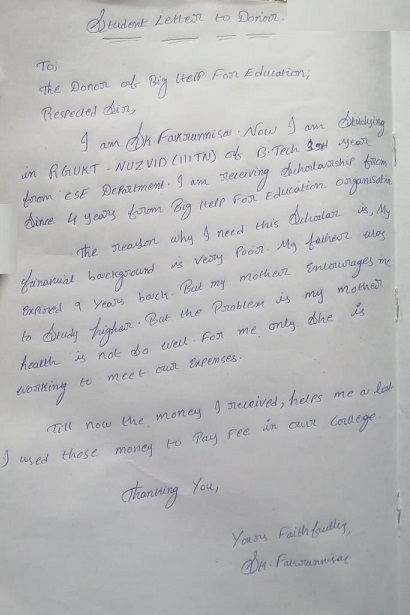 Student Letter to Donor.
To,
The Donor of Big Help For Education,
Respected Sir,
I am Sk Fakrunnisa. Now I am Studying
in RGUKT - NUZVID (IIITN) of B.Tech 3rd year
from CSE Department. I am receiving Scholarship from
Since 4 years from Big Help For Education organisation
The reason why I need this Scholar is, My
financial background is very Poor. My father was
expired 9 years back. But my mother Encourages me
to Study higher. But the Problem is my mother
health is not so well. For me only She is
working to meet our expenses.
Till now the money I received, helps me a lot
I used those money to Pay Fee in our College
Thanking You,
Yours Faithfully,
Sk. Fakrunnisa